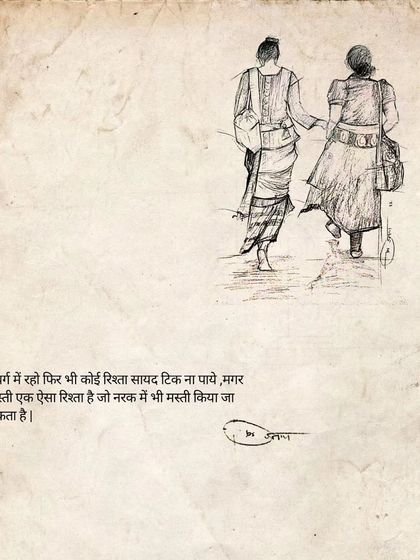 र्ग में रहो फिर भी कोई रिश्ता सायद टिक ना पाये ,मगर
स्ती एक ऐसा रिश्ता है जो नरक में भी मस्ती किया जा
कता है |